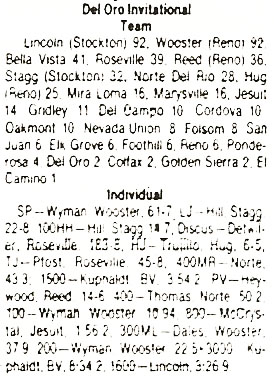 Del Oro Invitational
Team
Lincoln (Stockton) 92, Wooster (Reno) 92,
Bella Vista 41, Roseville 39, Reed (Reno) 36,
Stagg (Stockton) 32, Norte Del Rio 28, Hug
(Reno) 25, Mira Loma 16, Marysville 16, Jesuit
14, Gridley 11, Del Campo 10, Cordova 10,
Oakmont 10, Nevada Union 8, Folsom 8, San
Juan 6, Elk Grove 6, Foothill 6, Reno 6, Ponde-
rosa 4, Del Oro 2, Colfax 2, Golden Sierra 2, El
Camino 1.
Individual
SP—Wyman, Wooster, 61-7. LJ—Hill, Stagg,
22-8. 100HH—Hill, Stagg, 14.7. Discus—Detwil-
er, Roseville, 183-8. HJ—Trujillo, Hug, 6-5.
TJ—Ptost, Roseville, 45-8. 400MR—Norte,
43.3. 1500—Kuphaldt, BV, 3:54.2. PV—Hey-
wood, Reed, 14-6. 400—Thomas, Norte, 50.2.
100—Wyman, Wooster, 10.94. 800—McCrys-
tal, Jesuit, 1:56.2. 300ML—Dales, Wooster,
37.9. 200—Wyman, Wooster, 22.5. 3000—Ku-
phaldt, BV, 8:34.2. 1600—Lincoln, 3:26.9.